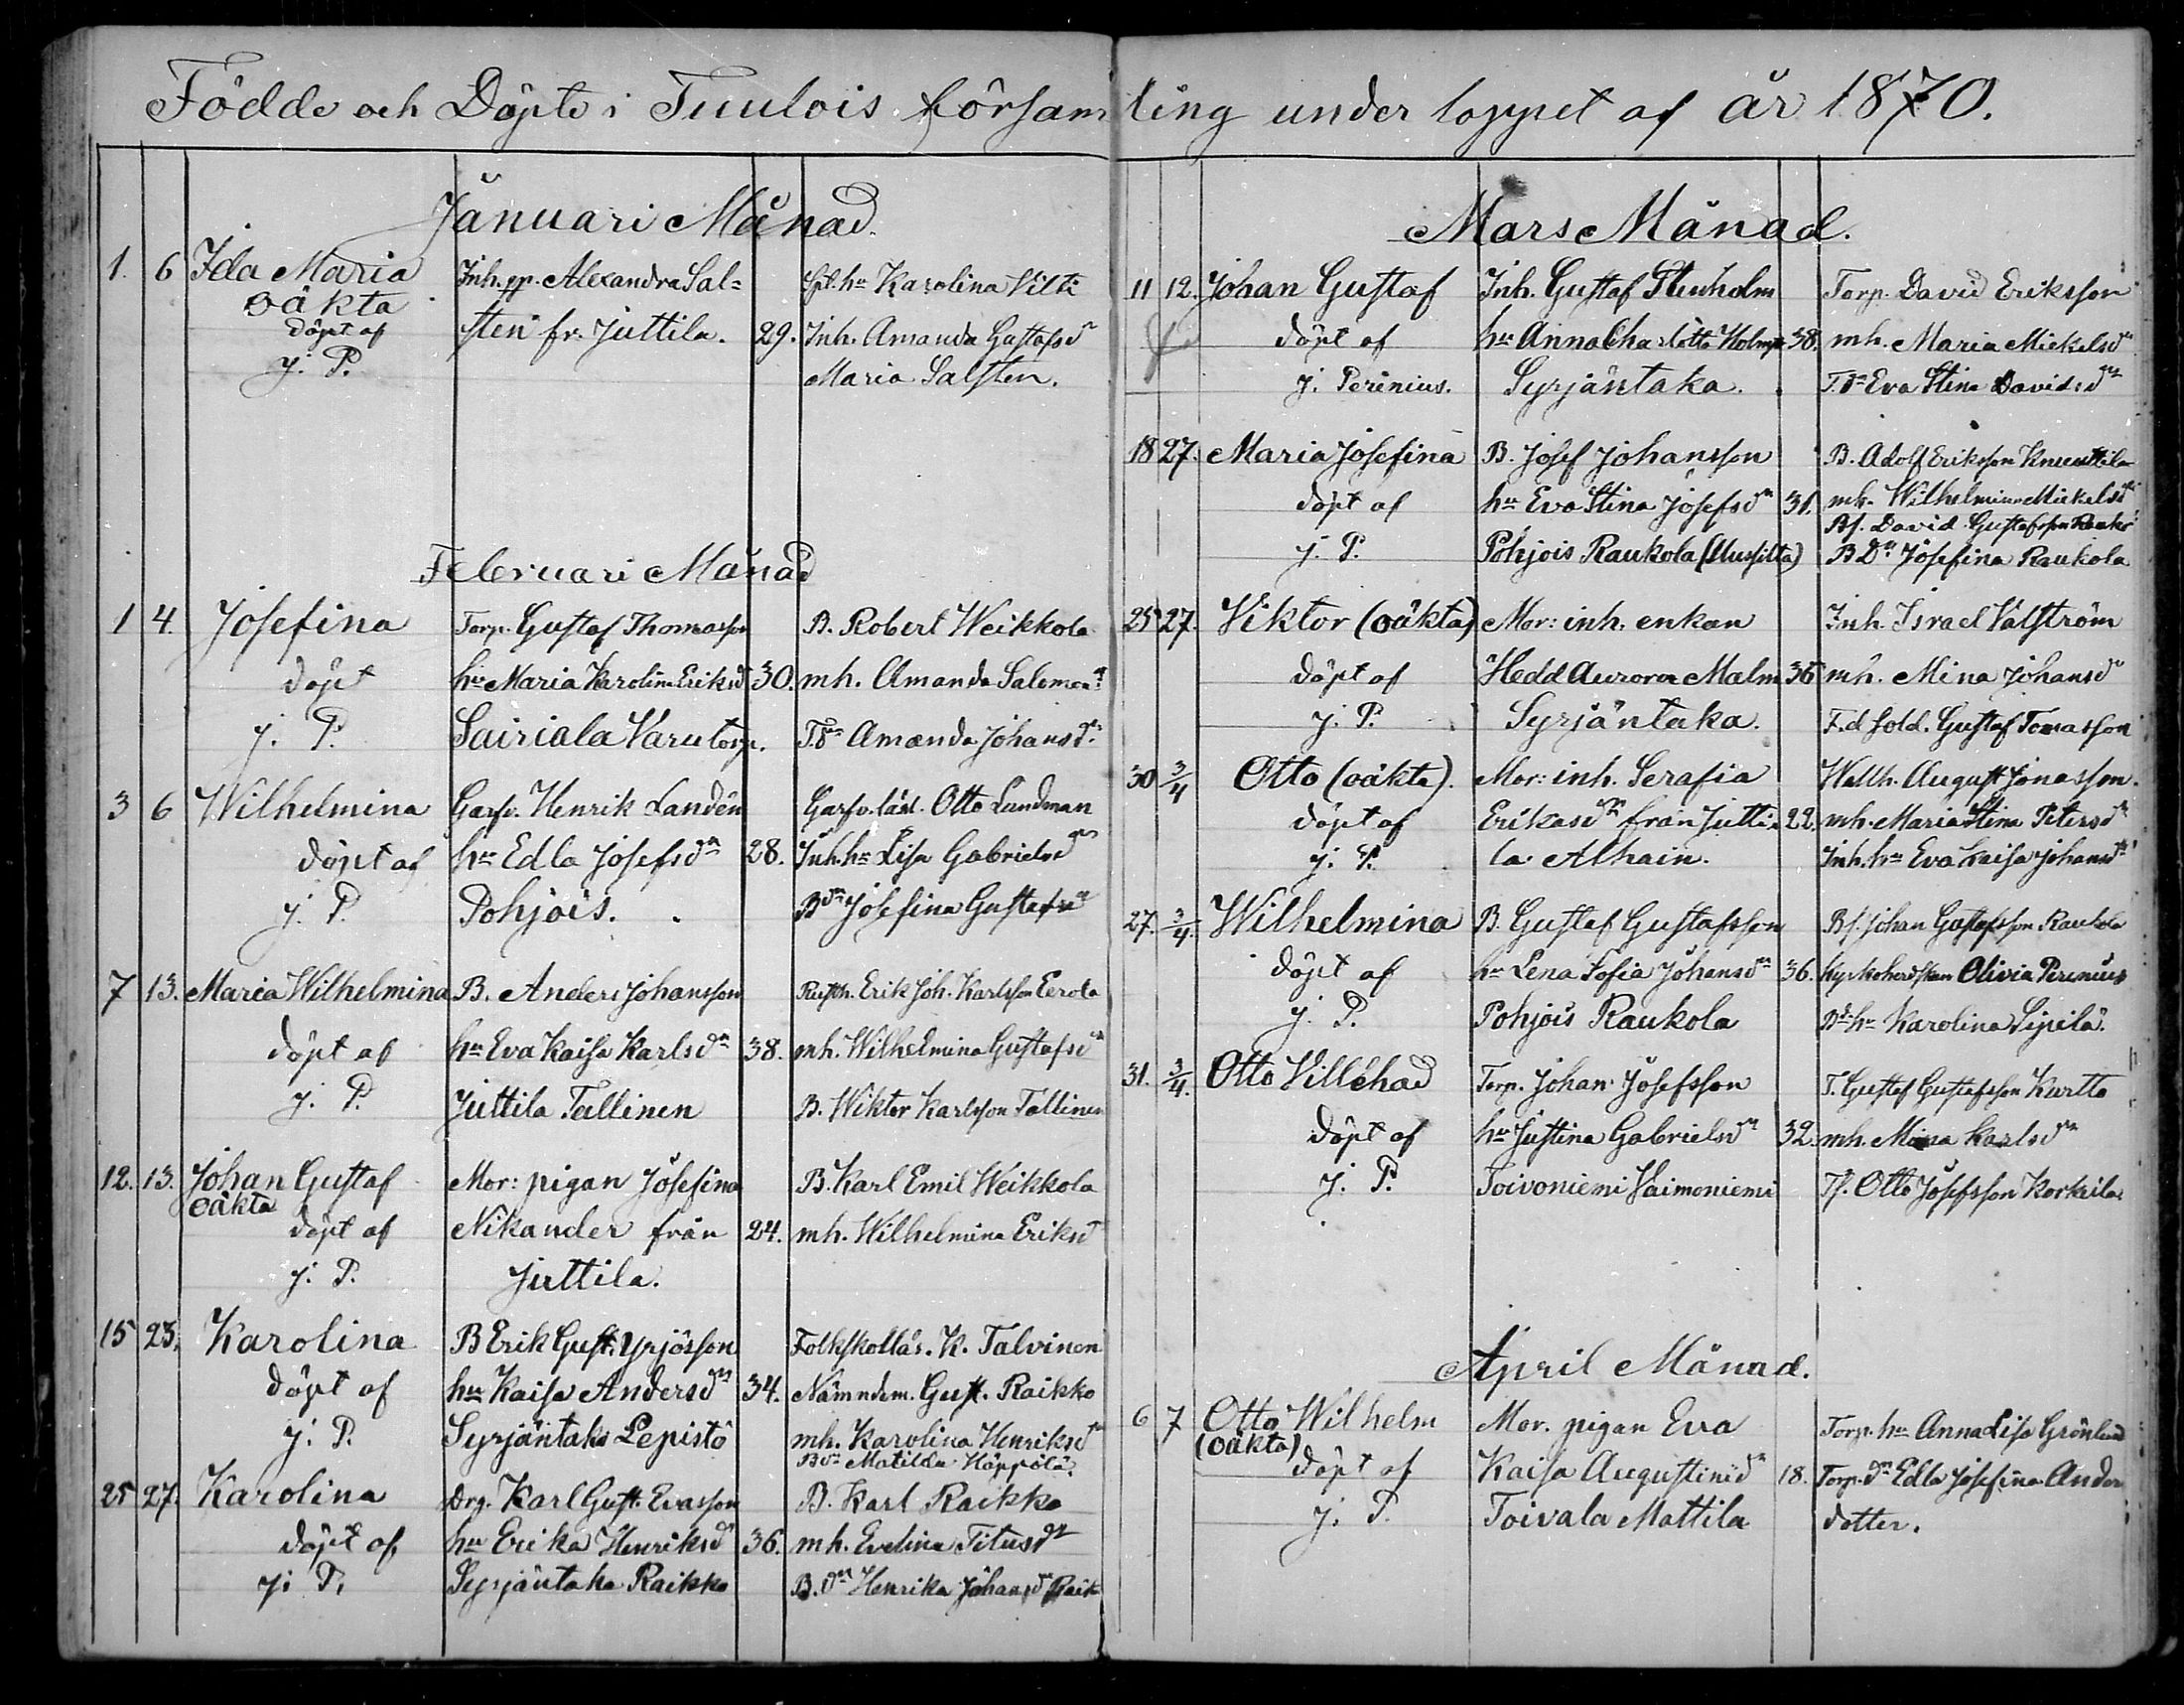 Födde och Döpte i Tuulois församling under loppet af år 1870.
Januari Månad.
1. 6 Ida Maria Inh. pp. Alexandra Sal= Karolina Vilti
oäkta
döpt af sten fr. Juttila. 29. Inh. Amanda Gustafsdr
J. P. Maria Salsten.
Februari Månad
1 4. Josefina Torp. Gustaf Thomasson B. Robert Weikkola
döpt hu Maria Karolina Eriksd 30. mh. Amanda Salomonsdr
J. P. Sairiala Varutorp. T.dr Amanda Johansdr
3 6 Wilhelmina Garfv. Henrik Landén Garfv. lärl. Otto Lundman
döpt af hu Edla Josefsdr 28. Inh. hu Lisa Gabrielsdr
J. P. Pohjois. Bdr Josefina Gustafsdr
7 13. Maria Wilhelmina B. Anders Johansson Rusth. Erik Joh. Karlsson Eerola
döpt af hu Eva Kaisa Karlsdr 38. mh. Wilhelmina Gustafsdr
J. P. Juttila Tallinen B. Wiktor Karlsson Tallinen
12. 13. Johan Gustaf Mor: pigan Josefina B. Karl Emil Weikkola
oäkta
döpt af Nikander från 24. mh. Wilhelmina Eriksd
J. P. Juttila.
15 23. Karolina B Erik Gust. Yrjösson Folkskollär. K. Talvinen
döpt af hu Kaisa Andersdr 34. Nämndem. Gust. Raikko
J. P. Syrjäntaka Lepistö mh. Karolina Henriksdr
Bdr Matilda Häppölä.
25 27. Karolina Drg. Karl Gust. Evasson B. Karl Raikko
döpt af hu Erika Henriksdr 36. mh. Evelina Titusdr
J. P. Syrjäntaka Raikko B. dr Henrika Johansdr Raik
Mars Månad.
11 12. Johan Gustaf Inh. Gustaf Stenholm Torp. David Eriksson
döpt af hu Anna Charlotta Holmp 38. mh. Maria Mickelsdr
J. Perenius. Syrjäntaka. T.dr Eva Stina Davidsdr
18 27. Maria Josefina B. Josef Johansson B. Adolf Eriksson Knuuttila
döpt af hu Eva Stina Josefsdr 31. mh. Wilhelmina Mickelsdr
Bs. David Gustafsson Rauko
J. P. Pohjois Raukola (Uusjilta) B Dr Josefina Raukola
25 27. Viktor (oäkta) Mor: inh. enkan Inh. Israel Valström
döpt af Hedd Aurora Malm 36 mh. Mina Johansdr
J. P. Syrjäntaka. F.d sold. Gustaf Tomasson
30 3/4 Otto (oäkta). Mor: inh. Serafia Wallh. August Jonasson.
döpt af Erikasdr från Jutti 22. mh. Maria Stina Petersdr
J. P. la Alhain. Inh. hu Eva Kaisa Johansdr
27. 3/4. Wilhelmina B. Gustaf Gustafsson Bs. Johan Gustafsson Raukola
döpt af hu Lena Sofia Johansdr 36. Kyrkoherdskan Olivia Perenius
J. P. Pohjois Raukola Bd. hu Karolina Sipilä.
31. 3/4. Otto Villehad Torp. Johan Josefsson T. Gustaf Gustafsson Kurtto
döpt af hu Justina Gabrielsdr 32. mh. Mina Karlsdr
J. P. Toivoniemi Haimoniemi Ts. Otto Josefsson Korkeila.
April Månad.
6 7 Otto Wilhelm Mor. pigan Eva Torp. hu Anna Lisa Grönlund
(oäkta)
döpt af Kaisa Augustinidr 18. Torp. dr Edla Josefina Ander
J. P. Toivala Mattila dotter.